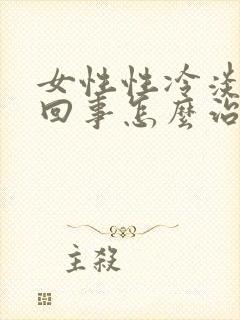 女性性冷淡
回事怎麼治
主殺